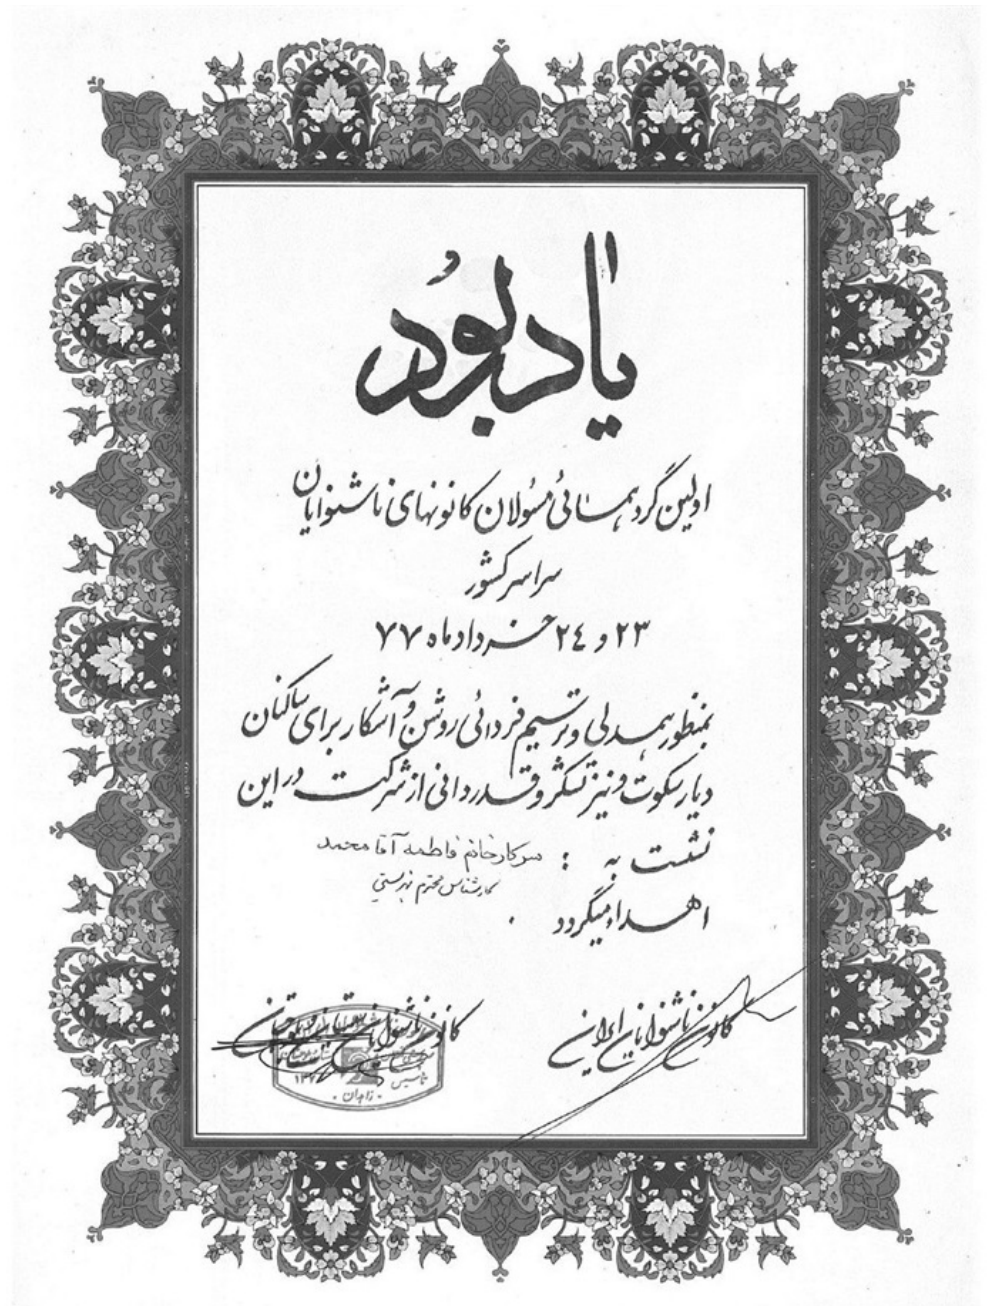 یادبود
اولین گردهمائی مسئولان کانونهای ناشنوایان
سراسر کشور
۲۳ و ۲٤ خرداد ماه ۷۷
بمنظور همدلی و ترسیم فردائی روشن و آشکار برای ساکنان
دیار سکوت و نیز تشکر و قدردانی از شرکت در این
نشست به : سرکار خانم فاطمه آقا محمد
کارشناس محترم بهزیستی
اهداء میگردد .
کانون ناشنوایان ایران
کانون ناشنوایان
تاسیس
زنجان